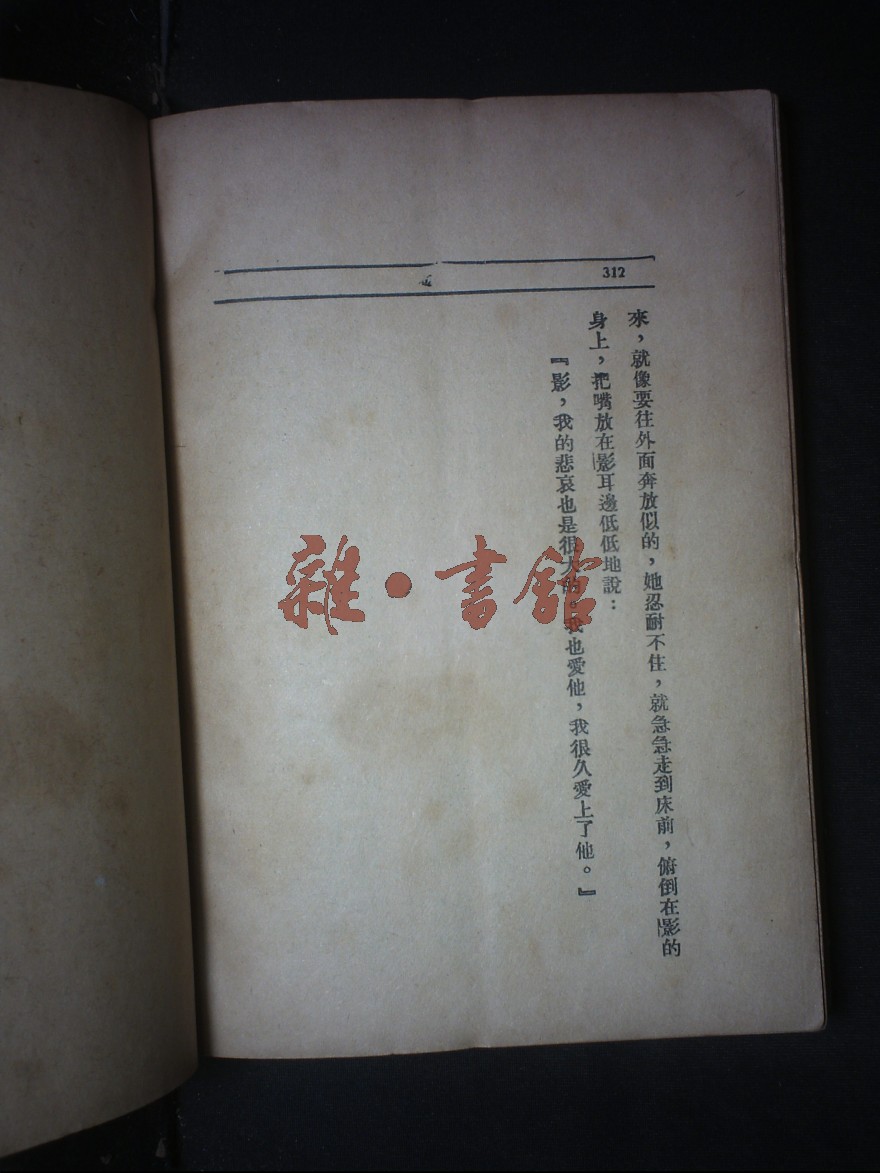 312
來，就像要往外面奔放似的，她忍耐不住，就急急走到床前，俯倒在影的
身上，把嘴放在影耳邊低低地說：
『影，我的悲哀也是很大的。我也愛他，我很久愛上了他。』
雜·書館